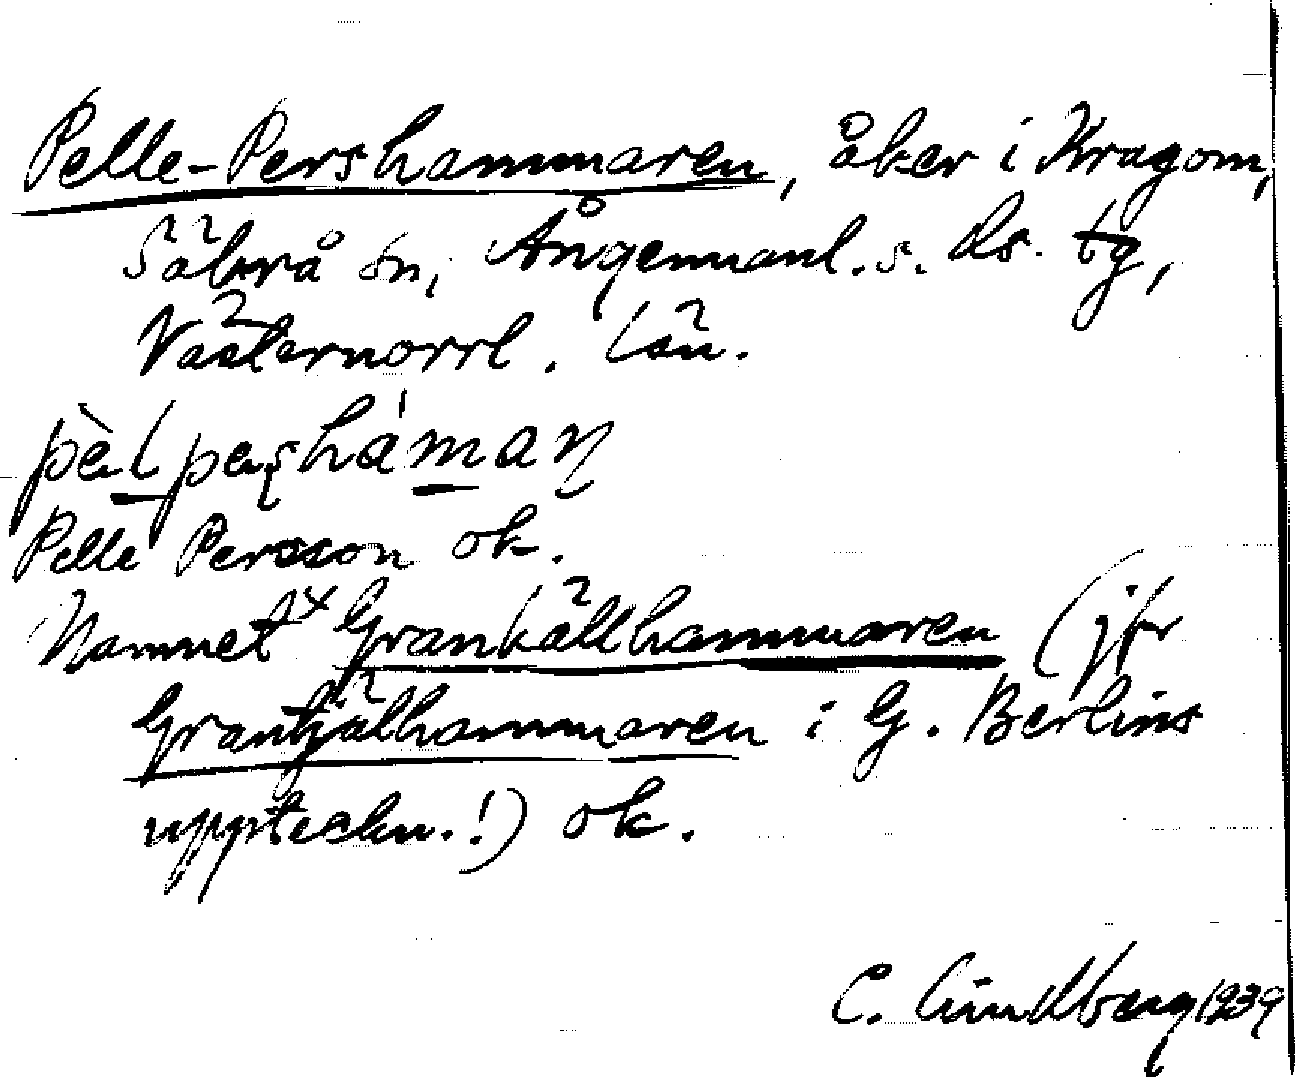 Pelle-Pershammaren, åker i Kragom,
Säbrå sn, Ångermanl. s. ds. tg,
Västernorrl. län.
pèl peʂháman̡
Pelle Persson ok.
Namnet × Grankällhammaren (jfr
Grantjälhammaren i G. Berlins
uppteckn.!) ok.
C. Lindberg 1939